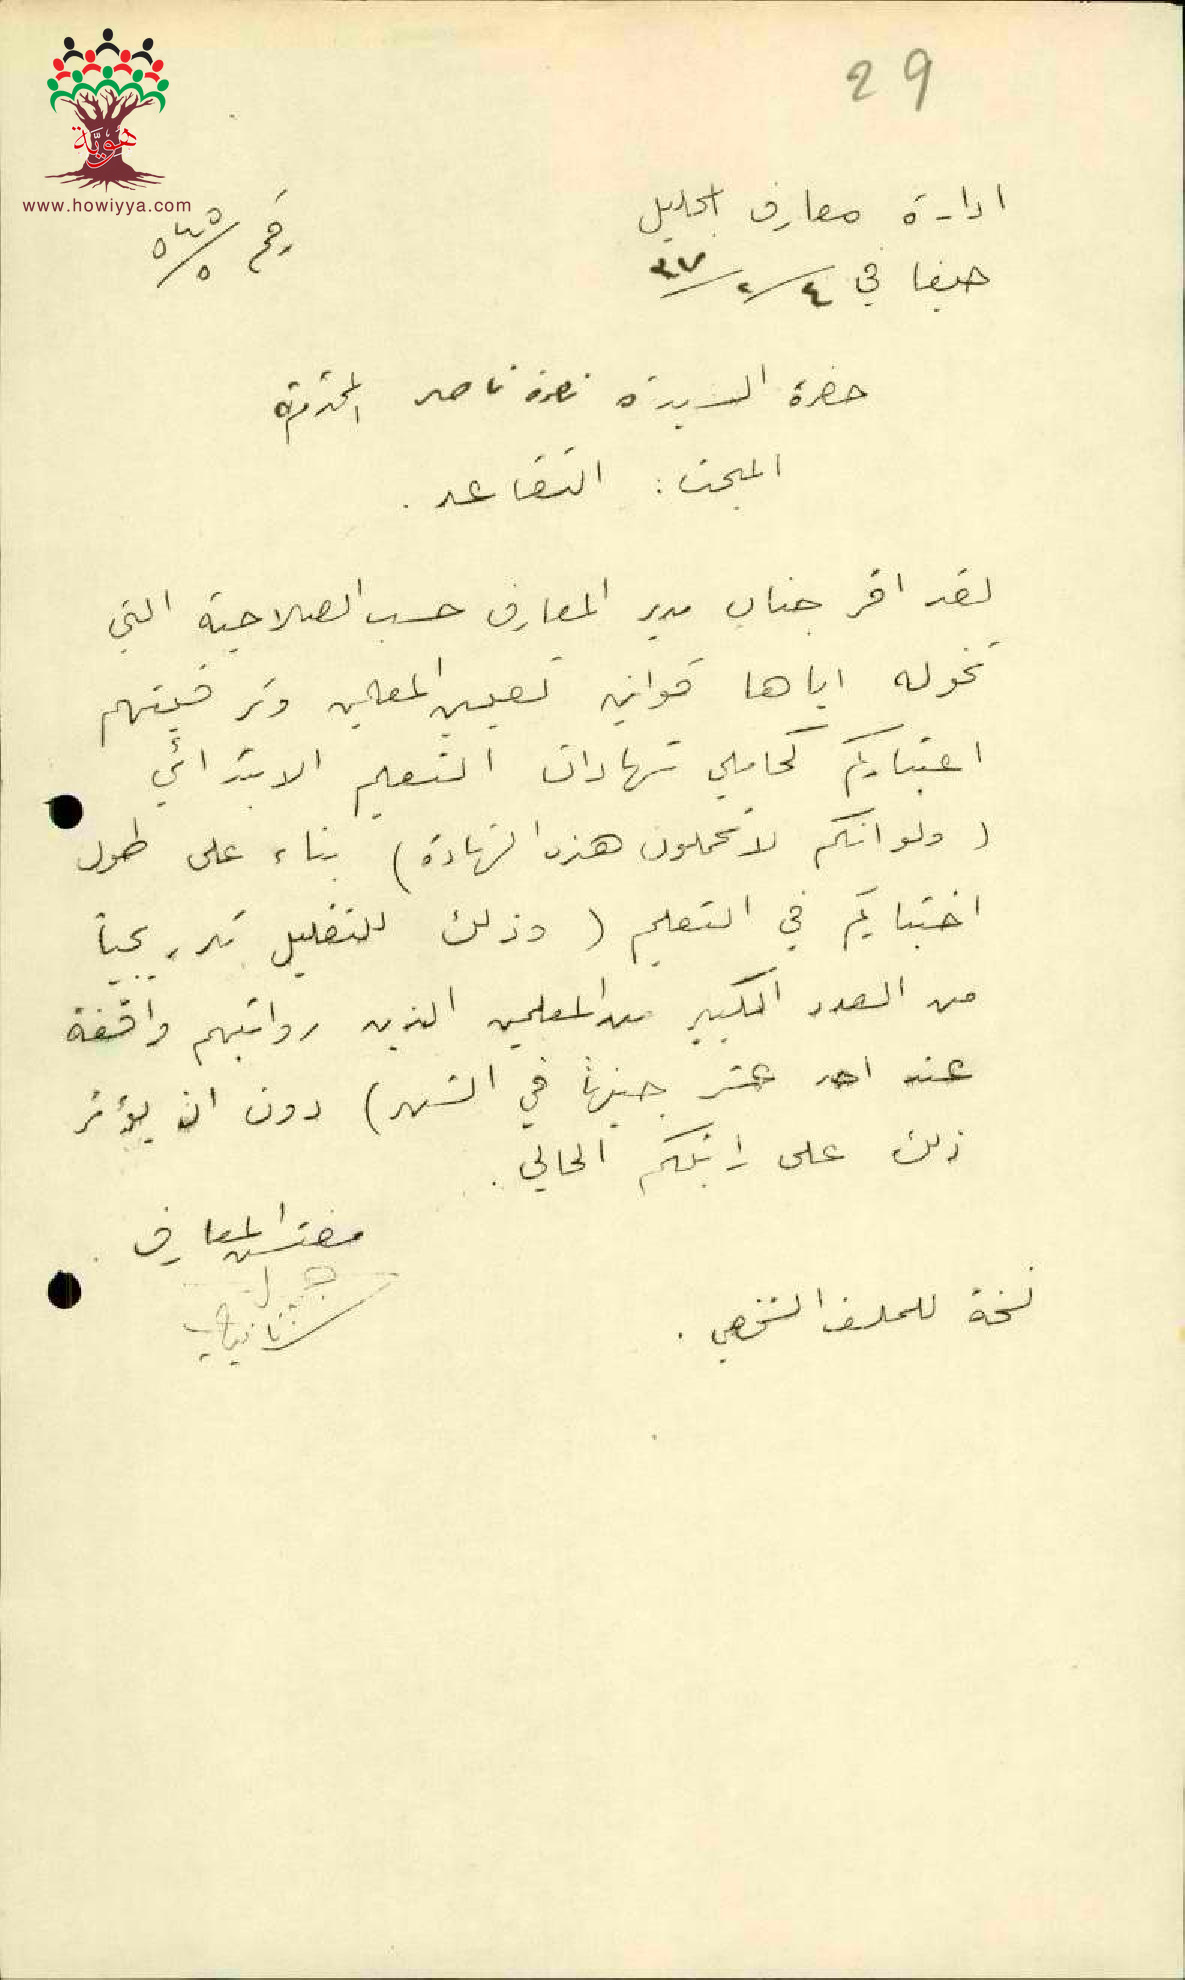 29
هوية
www.howiyya.com
ادارة معارف الجليل
رقم ٥٤٥/٥
حيفا في ٤/٢/٣٧
حضرة السيدة نصرة ناصر المحترمة
المبحث: التقاعد .
لقد اقر جناب مدير المعارف حسب الصلاحية التي
تخوله اياها قوانين تعيين المعلمين وترقيتهم
اعتباركم كحاملي شهادات التعليم الابتدائي
( ولو انكم لا تحملون هذه الشهادة ) بناء على طول
اختباركم في التعليم ( وذلك للتقليل تدريجياً
من العدد الكبير من المعلمين الذين رواتبهم واقفة
عند احد عشر جنيهاً في الشهر ) دون ان يؤثر
ذلك على راتبكم الحالي .
مفتش المعارف .
نسخة للملف الشخصي .